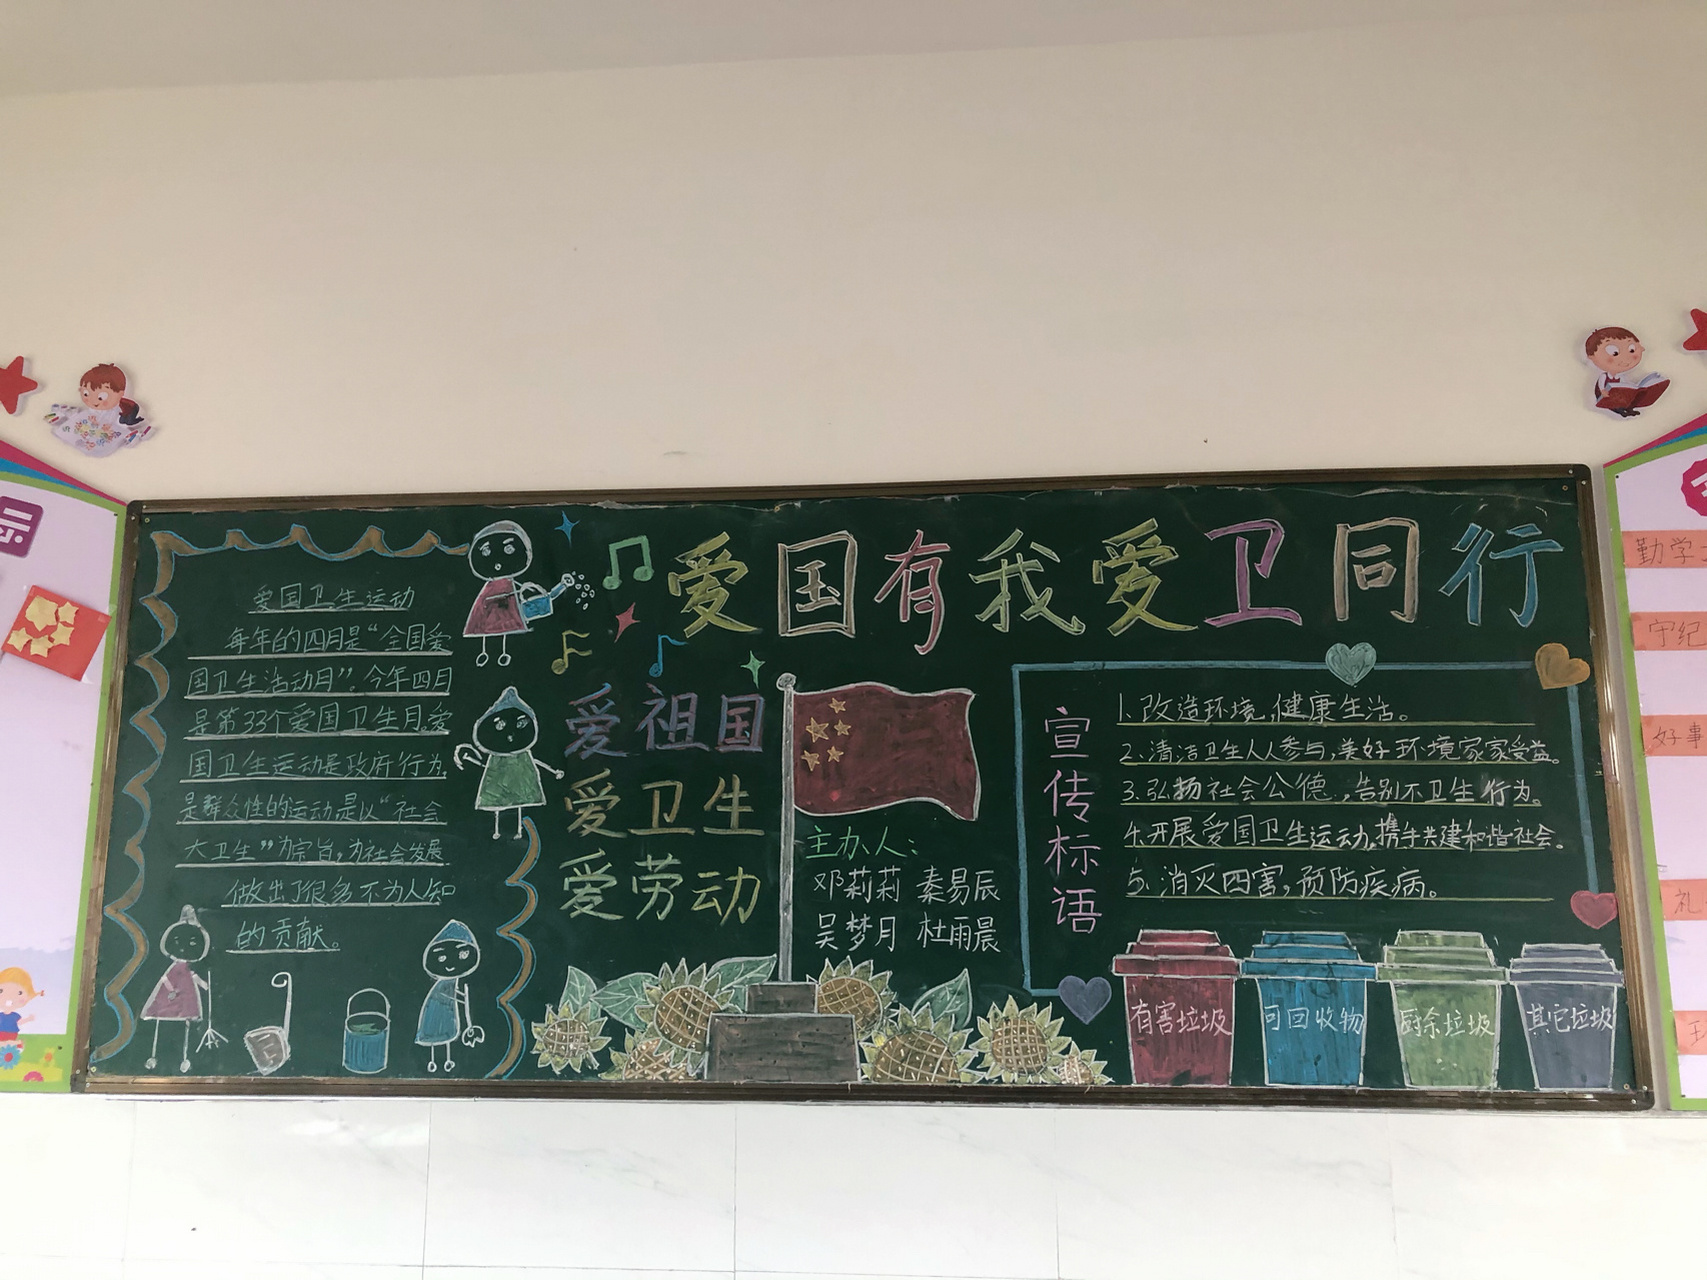 爱国有我爱卫同行
爱国卫生运动
每年的四月是“全国爱
国卫生活动月”。今年四月
是第33个爱国卫生月。爱
国卫生运动是政府行为,
是群众性的运动,是以“社会
大卫生”为宗旨,为社会发展
做出了很多不为人知
的贡献。
爱祖国
爱卫生
爱劳动
主办人:
邓莉莉 秦易辰
吴梦月 杜雨晨
宣传标语
1.改造环境,健康生活。
2.清洁卫生人人参与,美好环境家家受益。
3.弘扬社会公德,告别不卫生行为。
4.开展爱国卫生运动,携手共建和谐社会。
5.消灭四害,预防疾病。
有害垃圾
可回收物
厨余垃圾
其它垃圾
示
勤学
守纪
好事
礼